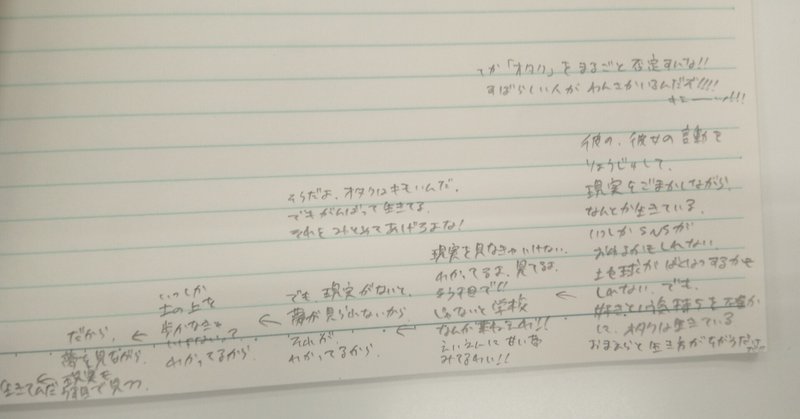 てか「オタク」をまるごと否定すんな!!
すばらしい人がわんさかいるんだぞ!!!!
彼の、彼女の言動を
りょうじょくして、
現実をごまかしながら、
なんとか生きている。
いつしかSNSが
おわるかもしれない
地球がばくはつするかも
しれない、でも、
好きという気持ちを
に、オタクは生きている
おまえらと生き方がちがうだけ
現実を見なきゃいけない。
わかってるよ、見てるよ
じゃないと学校
なんか来ねぇわ!!
えいえんに
みてるわい!!
そうだよ、オタクはキモいんだ。
でもがんばって生きてる。
それをみとめてあげろよな!
でも、現実がないと、
夢が見られないから
それが
わかってるから
いつしか
土の上を
歩かなきゃ
いけないって
わかってるから
だから、
夢を見ながら
現実を
で見つつ
生きてんだ